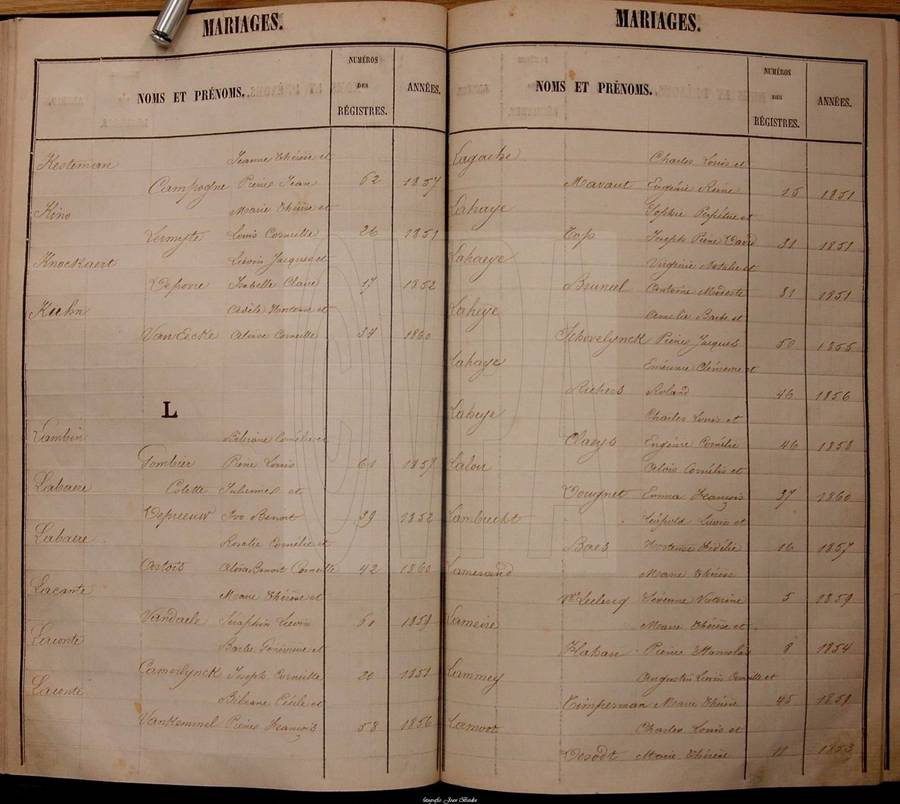 MARIAGES.
NOMS ET PRÉNOMS.
NUMÉROS
DES
RÉGISTRES.
ANNÉES.
Kesteman Jeanne Thérèse et
Campagne Pierre Jean 62 1857
Kino Marie Thérèse et
Vermyste Louis Corneille 26 1851
Knockaert Lievin Jacques et
Depovre Isabelle Claire 17 1852
Kuhn Adèle Hortense et
Van Eecke Aloïse Corneille 34 1860
L
Lambin
Gombier Pierre Louis 61
Labaere Colette Julienne et
Depreeuw Ivo Benoit 39 1852
Labaere Rosalie Cornélie et
Benoit Corneille 42 1860
Laconte Marie Thérèse et
Vandaele Séraphin Lievin 1859
Laconte Barbe Geneviève et
Camerlynck Joseph Corneille 20 1851
Laconte Cécile et
Van Kemmel Pierre François 58 1856
MARIAGES.
NOMS ET PRÉNOMS.
NUMÉROS
DES
RÉGISTRES.
ANNÉES.
Lagache Charles Louis et
Mavaut Eugénie Reine 15 1851
Lahaye Sophie Perpétue et
Top Joseph Pierre David 31 1851
Lahaeye Virginie Natalie et
Bruneel Antoine Modeste 31 1851
Laheye Amelie Barbe et
Schovelynck Pierre Jacques 50 1855
Lahaye Clémence et
Richers Roland 46 1856
Laheye Charles Louis et
Claeys Eugénie Cornélie 46 1858
Lalou Aloïs Cornélis et
Emma François 37 1860
Lambrecht Léopold Livin et
Baes Hortense Fidélie 16 1857
Marie Thérèse
Leclercq Victorine 5 1859
Lameire Marie Thérèse et
Pierre Stanislas 8 1854
Lammey Augustin Louis Corneille et
Timperman Marie Thérèse 45 1859
Lamoot Charles Louis et
Marie Thérèse 18 1853